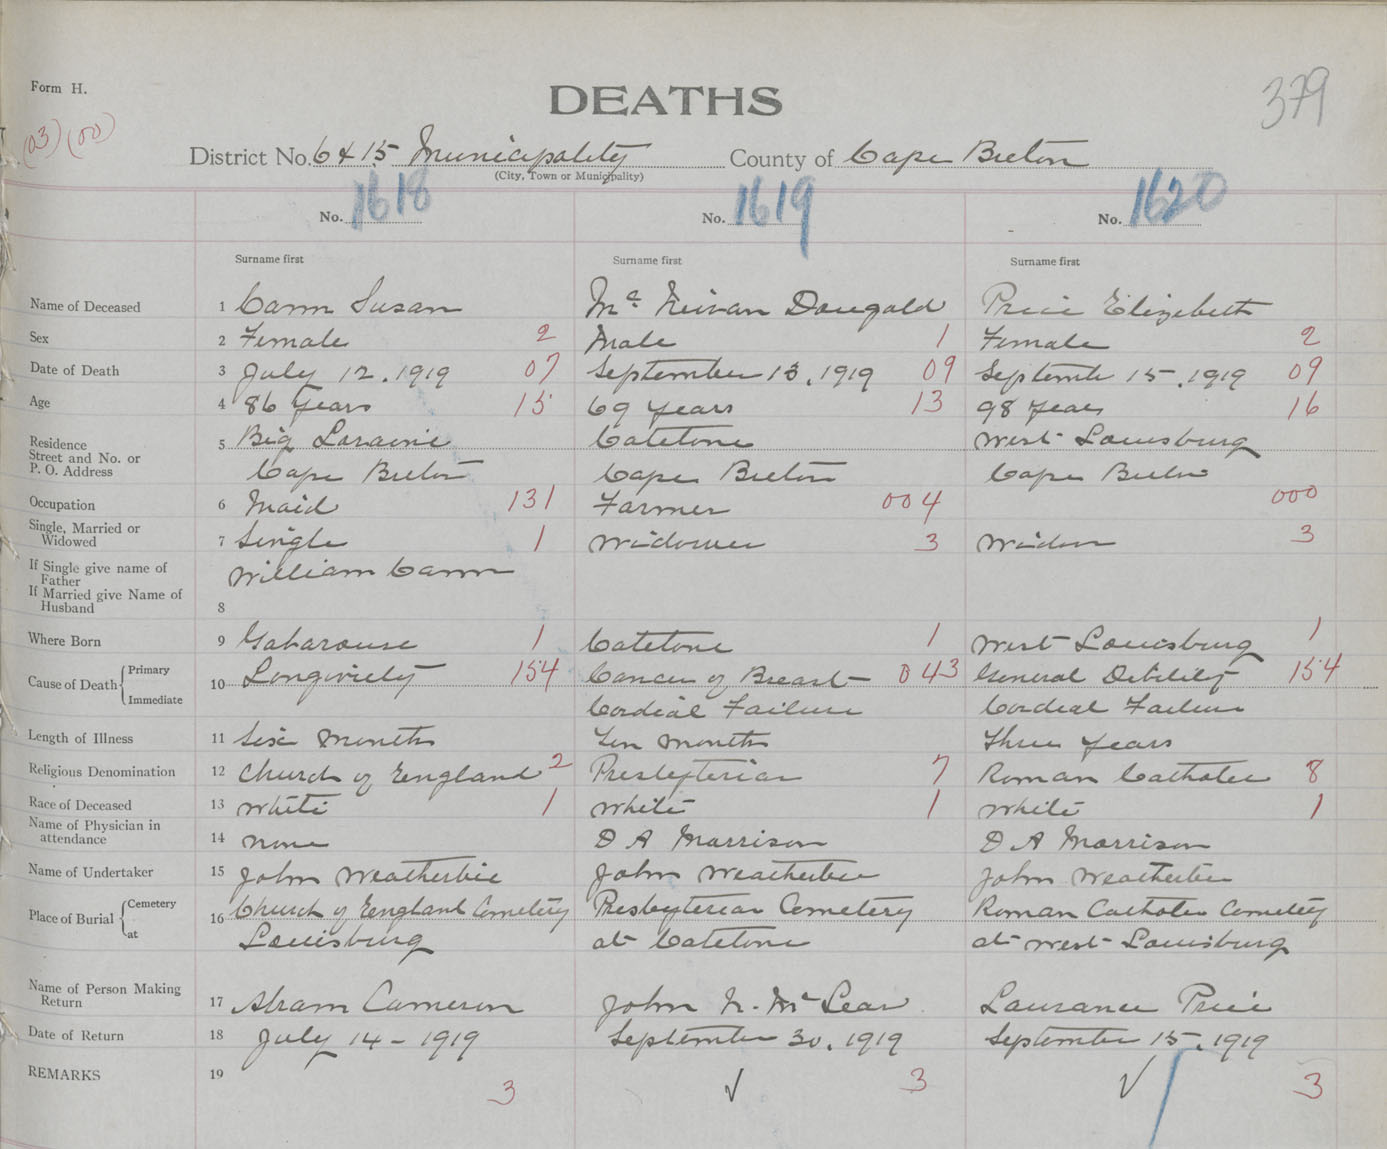 Form H.
DEATHS
379
(03) (00)
District No. 6 & 15 Municipality County of Cape Breton
(City, Town or Municipality)
No. 1618 No. 1619 No. 1620
Surname first Surname first Surname first
Name of Deceased 1 Cann Susan Mc Dougald Price Elizebeth
Sex 2 Female 2 Male 1 Female 2
Date of Death 3 July 12, 1919 07 September 13, 1919 09 Septembr 15, 1919 09
Age 4 86 Years 15 69 Years 13 98 Years 16
Residence 5 Big Loraine Catetone West Louisburg
Street and No. or
P. O. Address Cape Breton Cape Breton Cape Breton
Occupation 6 Maid 131 Farmer 004 000
Single, Married or
Widowed 7 Single 1 Widower 3 Widow 3
If Single give name of
Father William Cann
If Married give Name of
Husband 8
Where Born 9 Gabarouse 1 Catetone 1 West Louisburg 1
Cause of Death { Primary 10 Longiviety 154 Cancer of Breast 043 General Debility 154
Immediate Cordial Failure Cordial Failure
Length of Illness 11 Six Months Ten Months Three Years
Religious Denomination 12 Church of England 2 Presbyterian 7 Roman Catholic 8
Race of Deceased 13 White 1 White 1 White 1
Name of Physician in
attendance 14 none D A Morrison D A Morrison
Name of Undertaker 15 John Weatherbie John Weatherbee John Weatherbee
Place of Burial { Cemetery 16 Church of England Cemetery Presbyterian Cemetery Roman Catholic Cemetery
at Louisburg at Catetone at West Louisburg
Name of Person Making
Return 17 Abram Cameron John N. McLean Laurance Price
Date of Return 18 July 14 - 1919 September 30, 1919 September 15, 1919
REMARKS 19 3 √ 3 √ 3